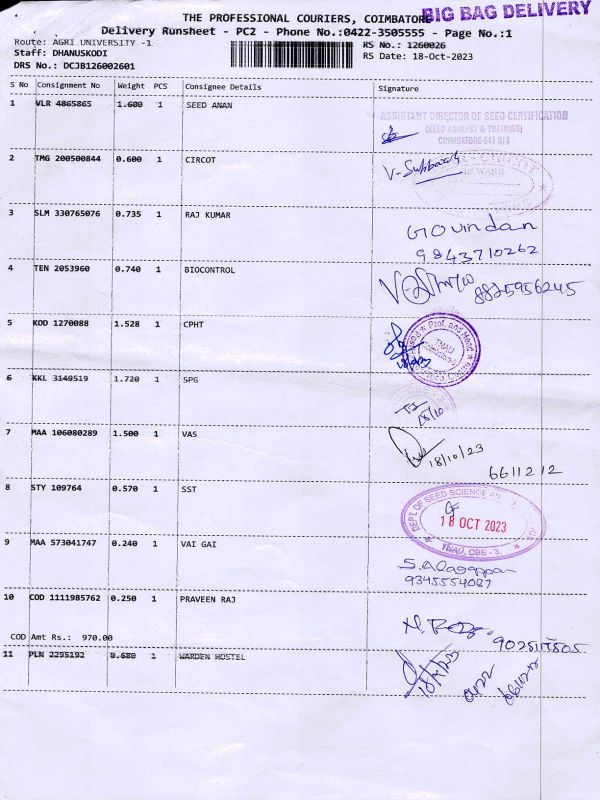 BIG BAG DELIVERY
THE PROFESSIONAL COURIERS, COIMBATORE
Delivery Runsheet - PC2 - Phone No.:0422-3505555 - Page No.:1
Route: AGRI UNIVERSITY -1
RS No.: 1260026
Staff: DHANUSKODI
RS Date: 18-Oct-2023
DRS No.: DCJB126002601
S No Consignment No Weight PCS Consignee Details Signature
1 VLR 4865865 1.600 1 SEED ANAN
ASSISTANT DIRECTOR OF SEED CERTIFICATION
(SEED ANALYST & TRAINING)
COIMBATORE-641 013
2 TMG 200500844 0.600 1 CIRCOT
3 SLM 330765076 0.735 1 RAJ KUMAR
Govindan
9843710262
4 TEN 2053960 0.740 1 BIOCONTROL
8825956245
5 KDD 1270088 1.528 1 CPHT
Prof. and Head
18/10/23
6 KKL 3149519 1.720 1 SPG
18/10
7 MAA 106080289 1.500 1 VAS
18/10/23
6611212
8 STY 109764 0.570 1 SST
DEPT OF SEED SCIENCE AN
18 OCT 2023
TNAU, CBE - 3.
9 MAA 573041747 0.240 1 VAI GAI
S. Alagappan
9345554087
10 COD 1111985762 0.250 1 PRAVEEN RAJ
COD Amt Rs.: 970.00
11 PLN 2295192 0.680 1 WARDEN HOSTEL